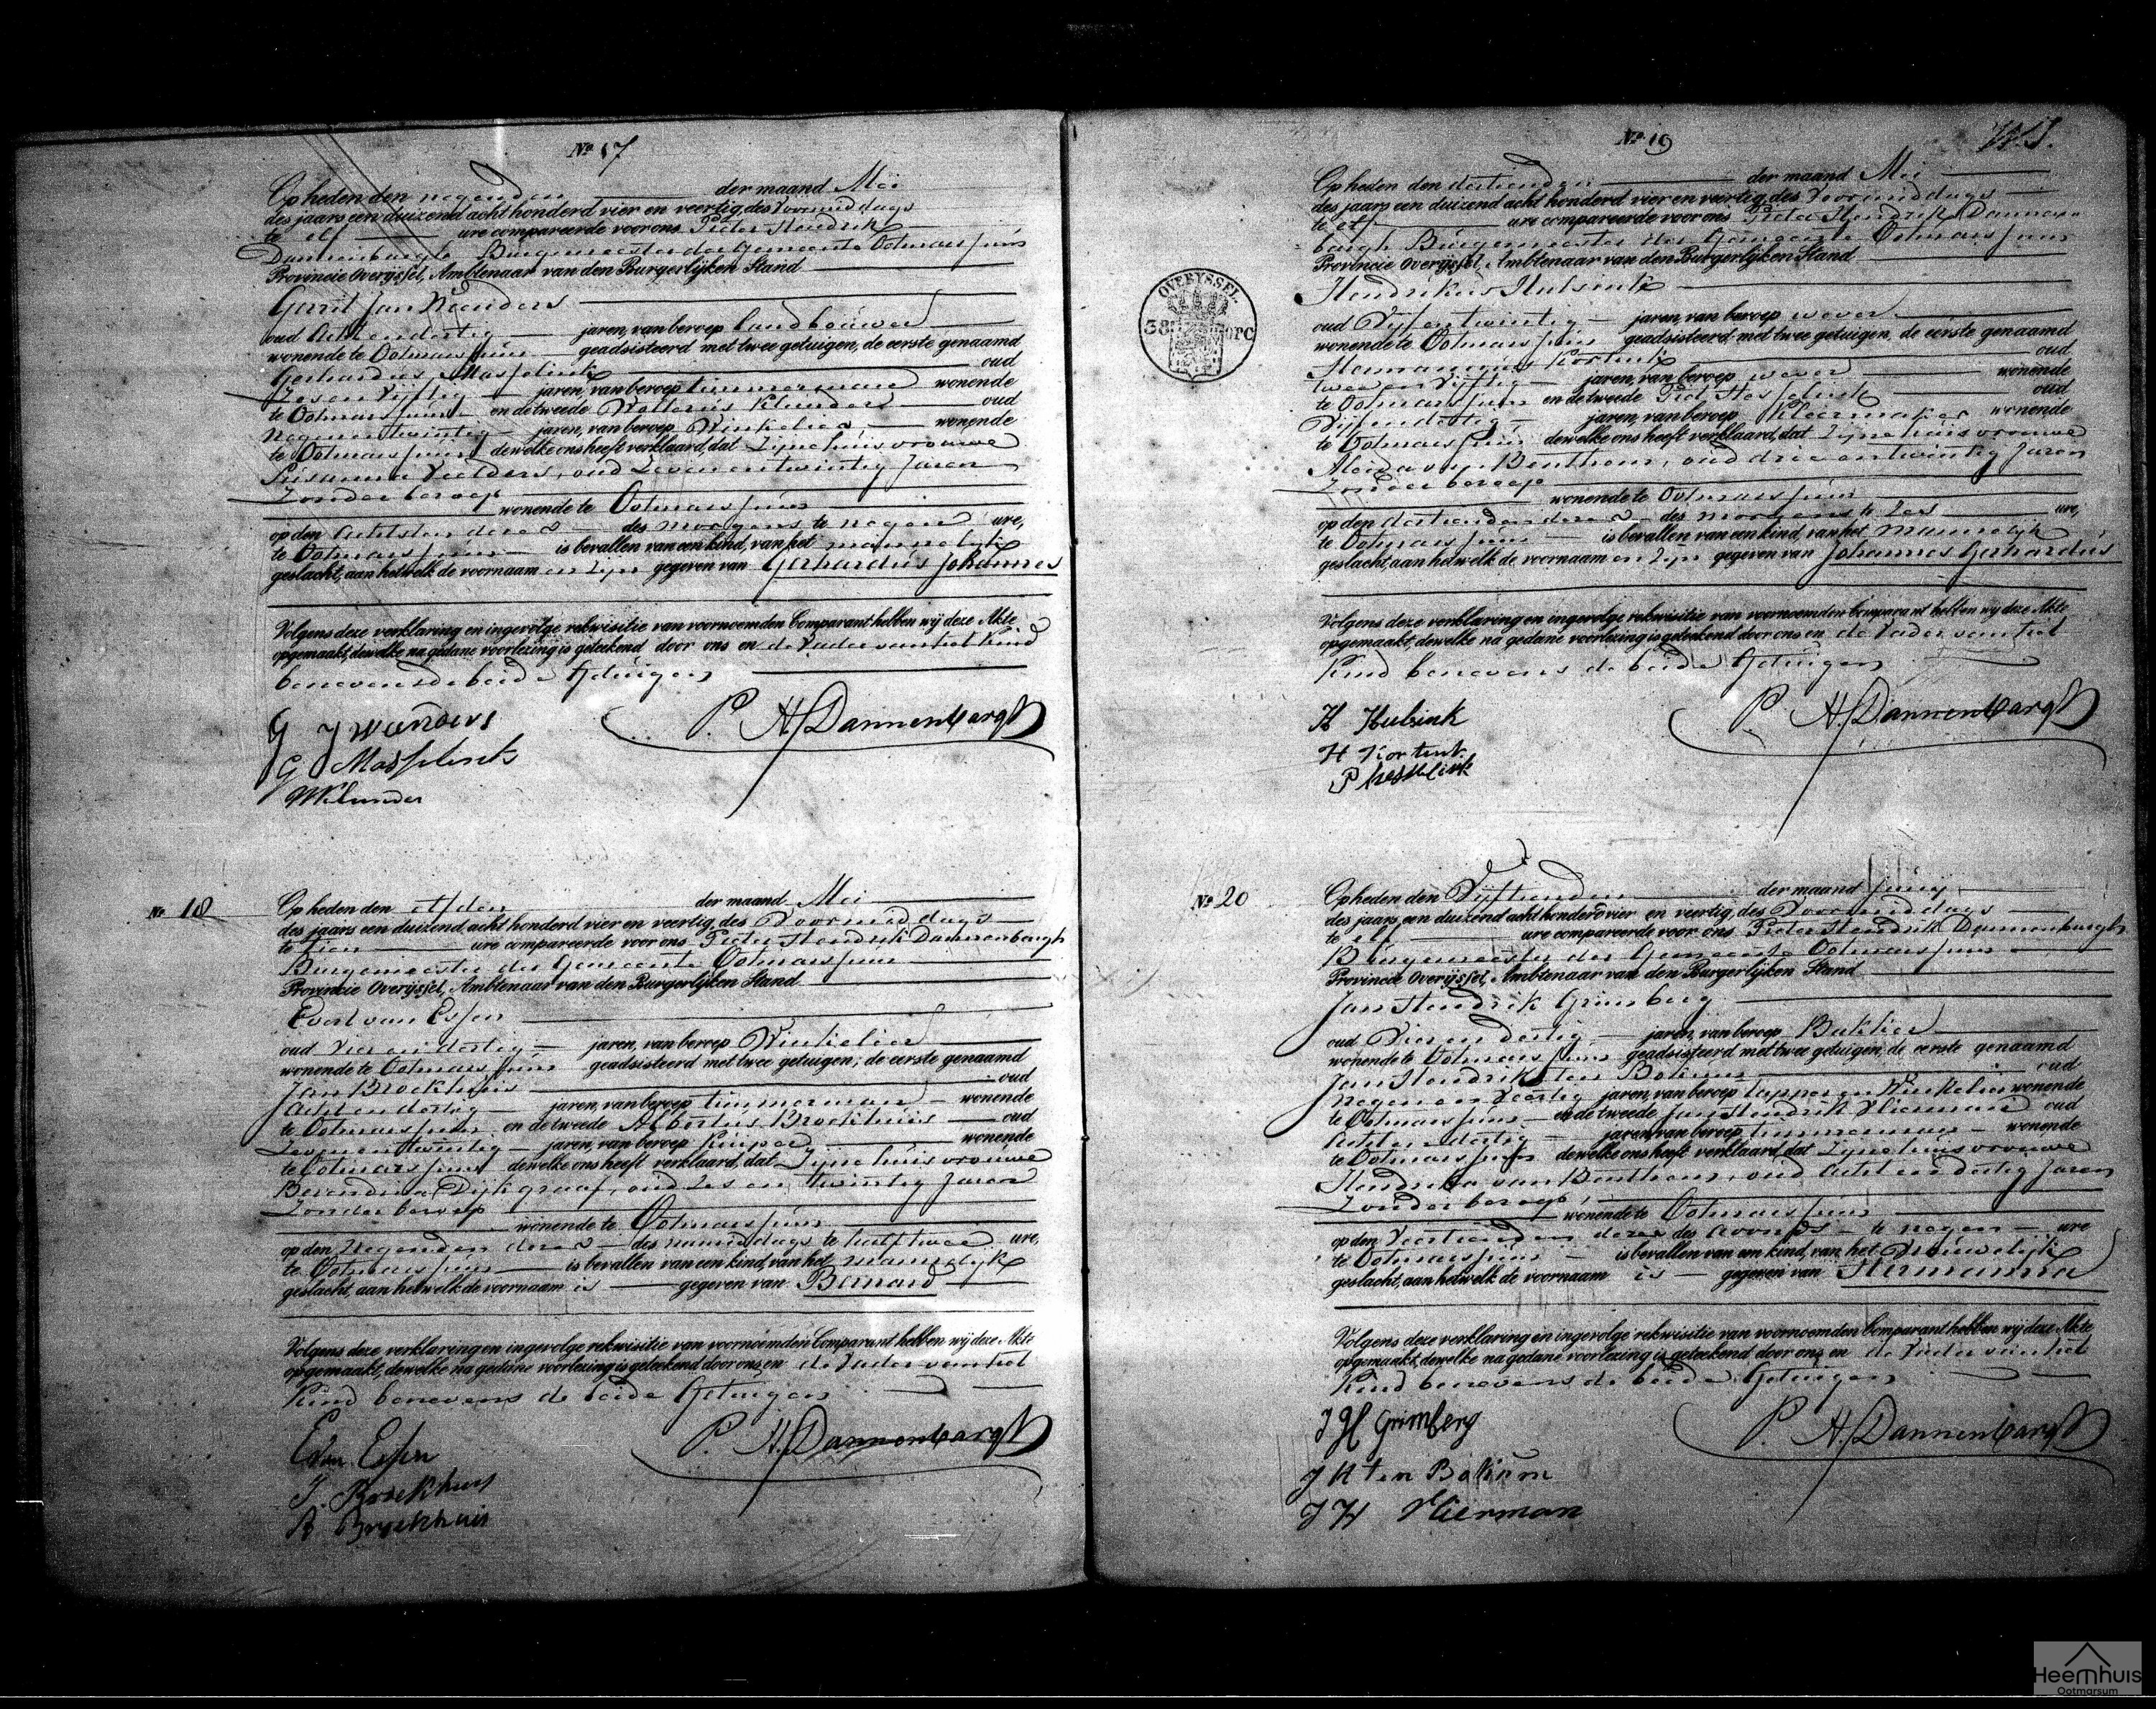 No 17
Op heden den negenden der maand Mei
des jaars een duizend acht honderd vier en veertig, des Voormiddags
te elf ure compareerde voor ons Pieter Hendrik
Dannenbargh Burgemeester der Gemeente Ootmarssum
Provincie Overijssel, Ambtenaar van den Burgerlijken Stand
Gerrit Jan
oud Acht en dertig jaren, van beroep landbouwer
wonende te Ootmarssum geadsisteerd met twee getuigen, de eerste genaamd
Gerhardus Masselink oud
Zes en Vijftig jaren, van beroep timmerman wonende
te Ootmarssum en de tweede Wolterus Klunder oud
Negen en twintig jaren, van beroep Winkelier wonende
te Ootmarssum dewelke ons heeft verklaard, dat Zijne huisvrouwe
Susanna oud Zeven en twintig Jaren
Zonder beroep
wonende te Ootmarssum
op den Achtsten dezer des morgens te negen ure,
te Ootmarssum is bevallen van een kind, van het mannelijk
geslacht, aan hetwelk de voornaam en zijn gegeven van Gerhardus Johannes
Volgens deze verklaring en ingevolge rekwisitie van voornoemden Comparant hebben wij deze Akte
opgemaakt, dewelke na gedane voorlezing is geteekend door ons en de Vader van het Kind
benevens de beide Getuigen
G J
P. H. Dannenbargh
G Masselink
W Klunder
No 18
Op heden den elfden der maand Mei
des jaars een duizend acht honderd vier en veertig, des Voormiddags
te tien ure compareerde voor ons Pieter Hendrik Dannenbargh
Burgemeester der Gemeente Ootmarssum
Provincie Overijssel, Ambtenaar van den Burgerlijken Stand
Evert van Essen
oud Vier en dertig jaren, van beroep Winkelier
wonende te Ootmarssum geadsisteerd met twee getuigen; de eerste genaamd
Jan Broekhuis oud
Acht en dertig jaren, van beroep timmerman wonende
te Ootmarssum en de tweede Albertus Broekhuis oud
Zeven en twintig jaren, van beroep Kuiper wonende
te Ootmarssum dewelke ons heeft verklaard, dat Zijne huisvrouwe
Berendina Dijkgraaf, oud Zes en twintig Jaren
Zonder beroep
wonende te Ootmarssum
op den Negenden dezer des namiddags te half twee ure,
te Ootmarssum is bevallen van een kind, van het mannelijk
geslacht, aan hetwelk de voornaam is gegeven van Bernard
Volgens deze verklaring en ingevolge rekwisitie van voornoemden Comparant hebben wij deze Akte
opgemaakt, dewelke na gedane voorlezing is geteekend door ons en de Vader van het
Kind benevens de beide Getuigen
E van Essen
P. H. Dannenbargh
J. Broekhuis
A Broekhuis
No 19
Op heden den dertienden der maand Mei
des jaars een duizend acht honderd vier en veertig, des Voormiddags
te elf ure compareerde voor ons Pieter Hendrik Dannen
bargh Burgemeester der Gemeente Ootmarssum
Provincie Overijssel, Ambtenaar van den Burgerlijken Stand
Hendrikus Hulsink
oud Vijf en twintig jaren, van beroep wever
wonende te Ootmarssum geadsisteerd met twee getuigen, de eerste genaamd
Hermannus Kortink oud
twee en Vijftig jaren, van beroep wever wonende
te Ootmarssum en de tweede Piet Hesselink oud
Vijf en dertig jaren, van beroep Kleermaker wonende
te Ootmarssum dewelke ons heeft verklaard, dat Zijne huisvrouwe
Aleida van Benthem, oud drie en twintig Jaren
Zonder beroep
wonende te Ootmarssum
op den dertienden dezer des morgens te Zes ure,
te Ootmarssum is bevallen van een kind, van het mannelijk
geslacht, aan hetwelk de voornaam en zijn gegeven van Johannes Gerhardus
Volgens deze verklaring en ingevolge rekwisitie van voornoemden Comparant hebben wij deze Akte
opgemaakt, dewelke na gedane voorlezing is geteekend door ons en de Vader van het
Kind benevens de beide Getuigen
H Hulsink
P. H. Dannenbargh
H Kortink
P Hesselink
OVERYSSEL
38
No 20
Op heden den Vijftienden der maand Junij
des jaars een duizend acht honderd vier en veertig, des Voormiddags
te elf ure compareerde voor ons Pieter Hendrik Dannenbargh
Burgemeester der Gemeente Ootmarssum
Provincie Overijssel, Ambtenaar van den Burgerlijken Stand
Jan Hendrik Grimberg
oud Vier en dertig jaren, van beroep
wonende te Ootmarssum geadsisteerd met twee getuigen, de eerste genaamd
Jan Hendrik ten oud
Negen en Veertig jaren, van beroep tapper en Winkelier wonende
te Ootmarssum en de tweede Jan Hendrik Vlierman oud
Acht en dertig jaren, van beroep timmerman wonende
te Ootmarssum dewelke ons heeft verklaard, dat Zijne huisvrouwe
Hendrika van Benthem, oud Acht en dertig Jaren
Zonder beroep
wonende te Ootmarssum
op den Veertienden dezer des avonds te negen ure
te Ootmarssum is bevallen van een kind, van het Vrouwelijk
geslacht, aan hetwelk de voornaam is gegeven van Hermanna
Volgens deze verklaring en ingevolge rekwisitie van voornoemden Comparant hebben wij deze Akte
opgemaakt, dewelke na gedane voorlezing is geteekend door ons en de Vader van het
Kind benevens de beide Getuigen
J H Grimberg
P. H. Dannenbargh
J H ten
J H Vlierman
Heemhuis
Ootmarsum